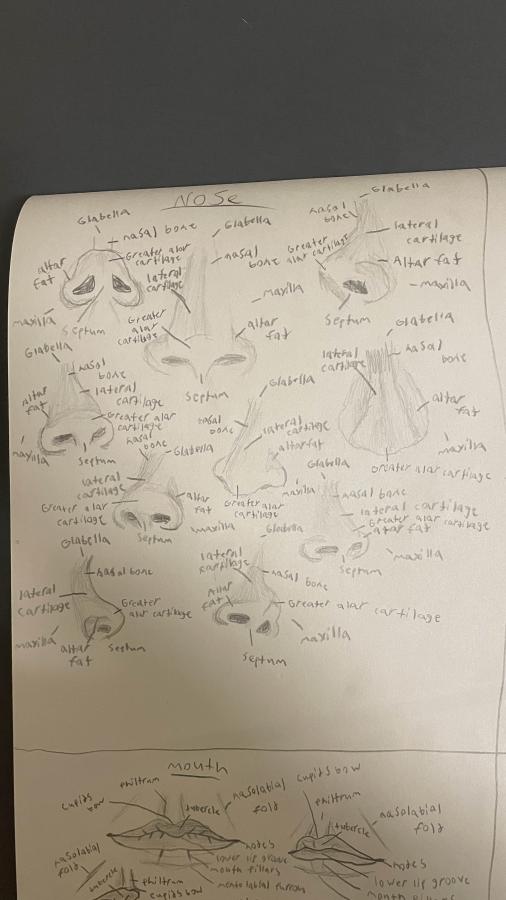 NOSE
Glabella
nasal bone
Greater alar
cartilage
altar
fat
maxilla
Septum
Glabella
nasal
bone
lateral
cartilage
maxilla
Greater
alar
cartilage
altar
fat
Septum
Glabella
nasal
bone
lateral
cartilage
Greater
alar cartilage
Altar fat
maxilla
Septum
Glabella
nasal
bone
lateral
cartilage
altar
fat
Greater alar
cartilage
maxilla
Septum
Glabella
nasal
bone
lateral
cartilage
altar fat
Greater alar
cartilage
maxilla
Glabella
lateral
cartilage
nasal
bone
altar
fat
maxilla
Greater alar cartilage
nasal
bone
Glabella
lateral
cartilage
Greater alar
cartilage
altar
fat
Septum
maxilla
Glabella
nasal bone
lateral cartilage
Greater alar cartilage
altar fat
maxilla
Septum
Glabella
nasal bone
lateral
cartilage
Greater
alar cartilage
maxilla
altar
fat
Septum
Glabella
lateral
cartilage
nasal bone
Altar
fat
Greater alar cartilage
maxilla
Septum
mouth
philtrum
cupids
bow
tubercle
nasolabial
fold
nodes
lower lip groove
mouth pillars
mentolabial furrow
cupids bow
philtrum
tubercle
nasolabial
fold
nodes
lower lip groove
mouth pillars
nasolabial
fold
tubercle
philtrum
cupids bow